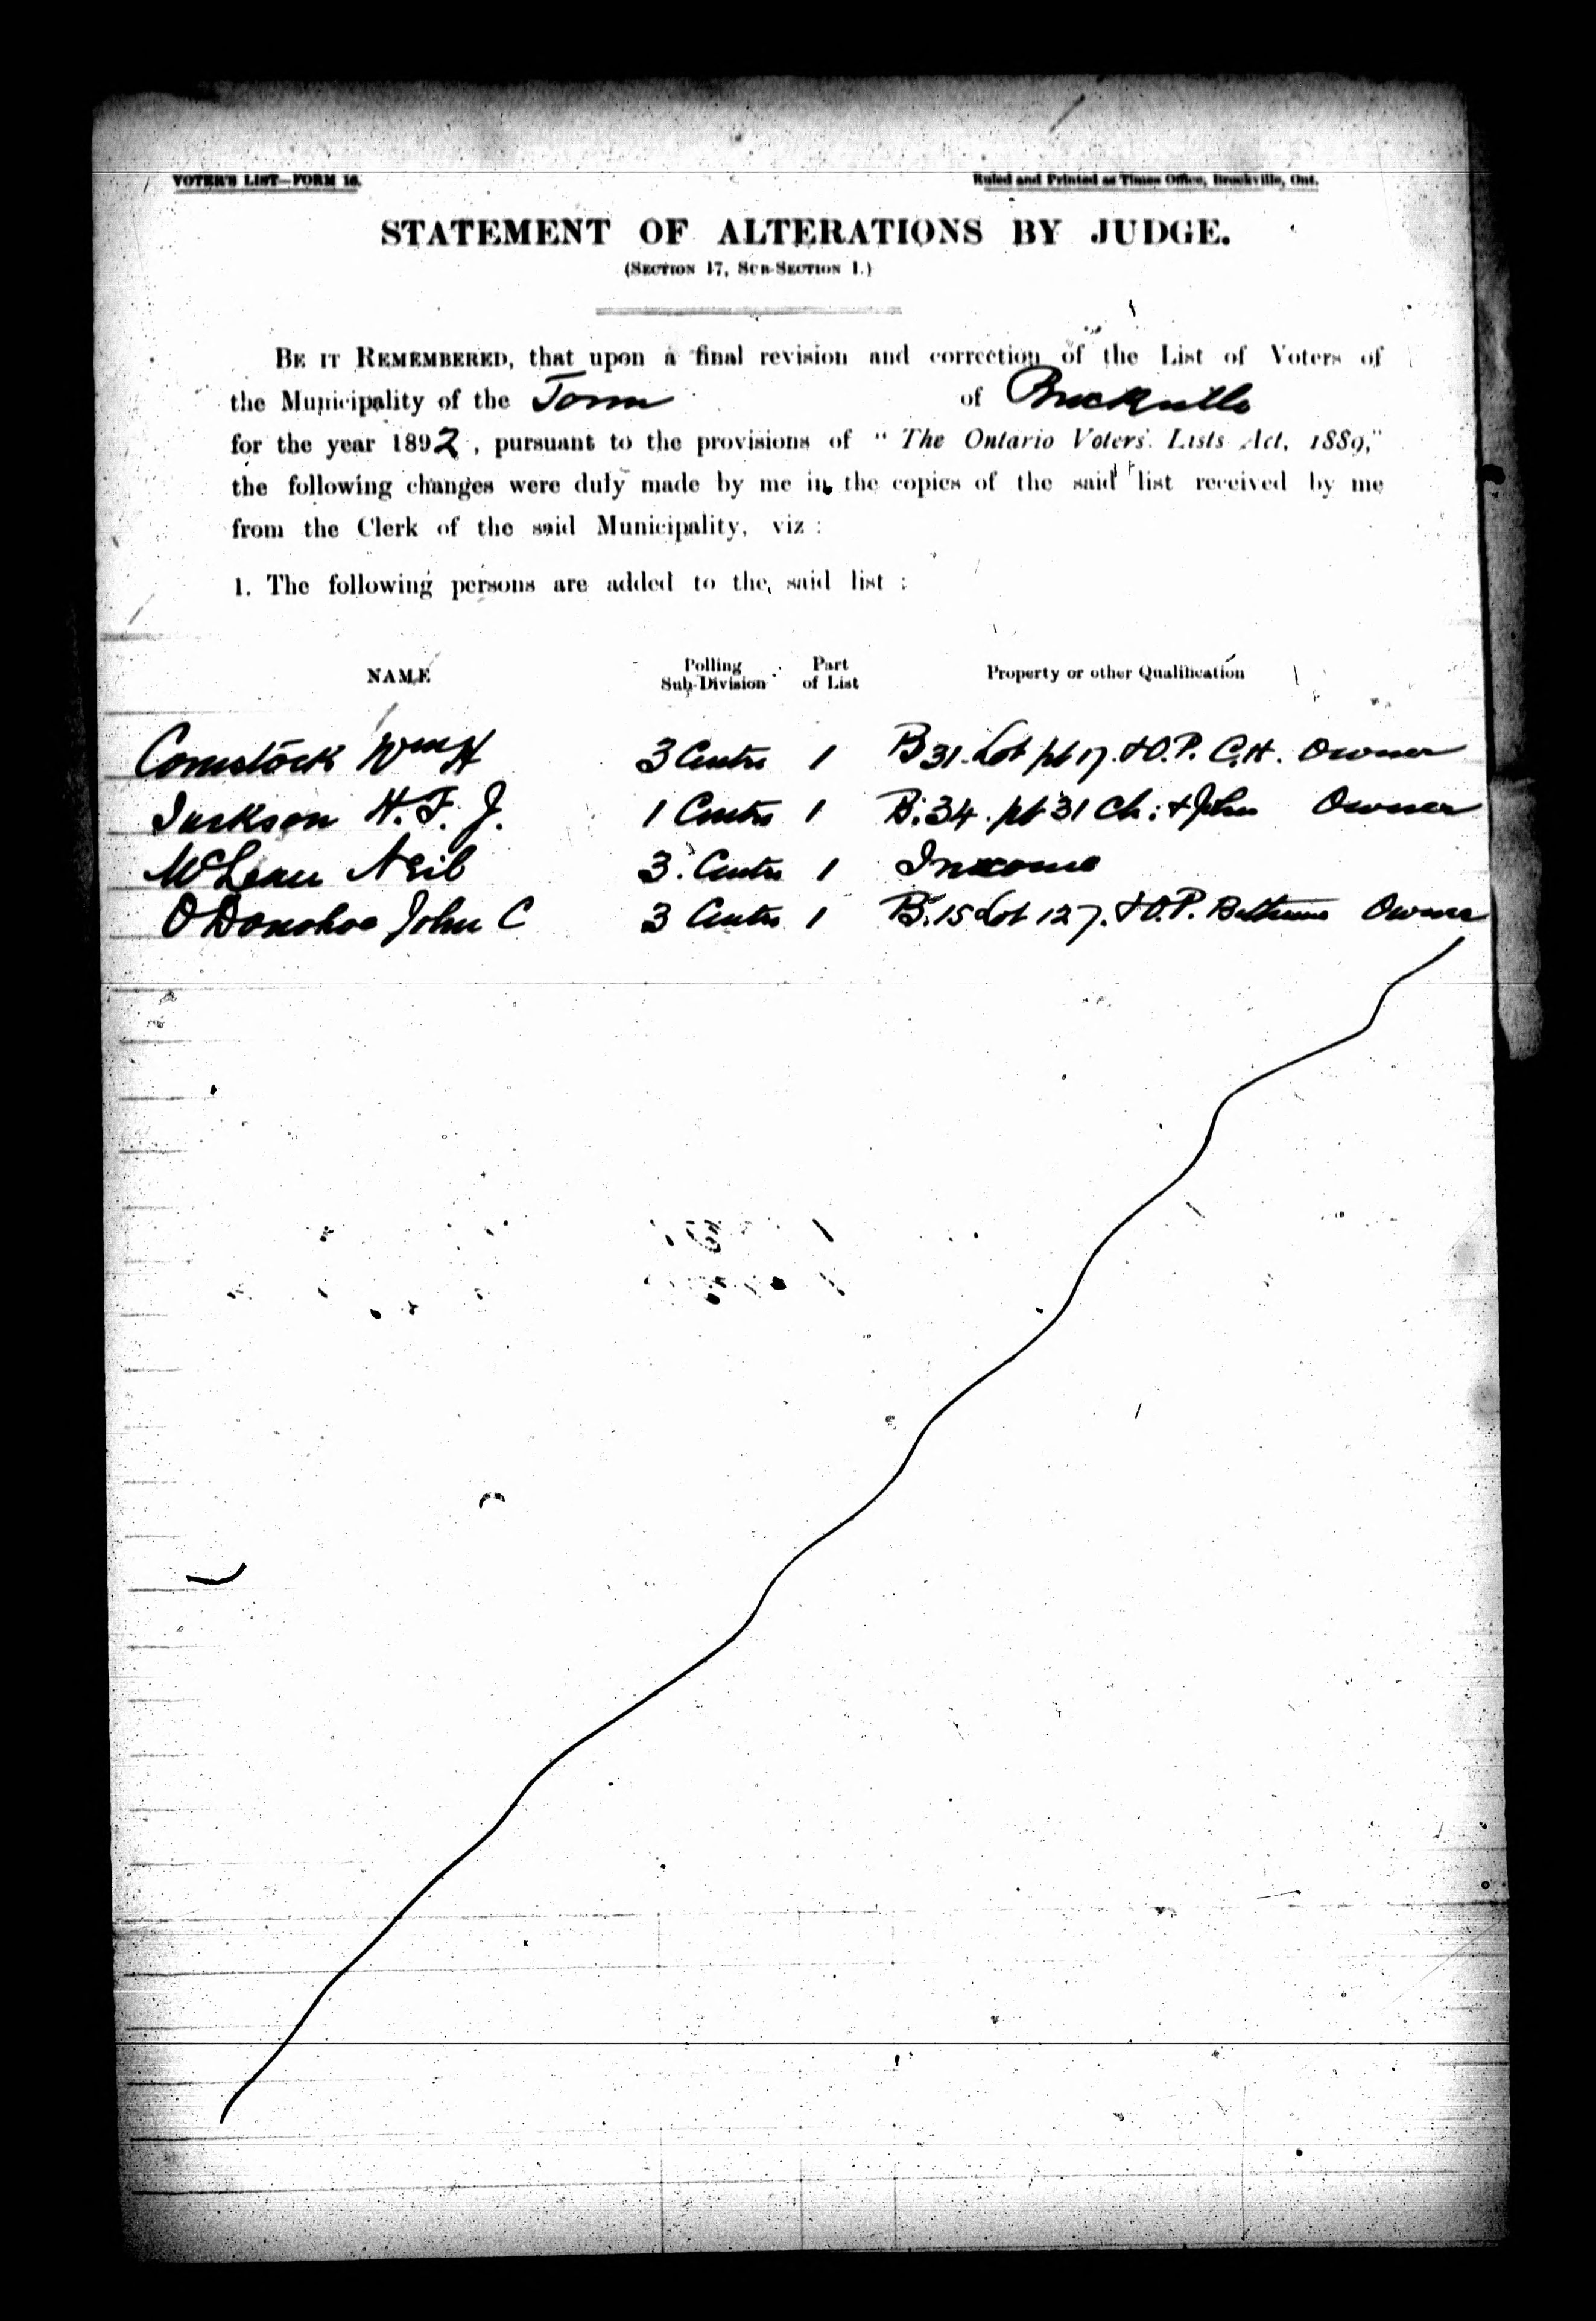 VOTER'S LIST—FORM 16.
Ruled and Printed as Times Office, Brockville, Ont.
STATEMENT OF ALTERATIONS BY JUDGE.
(SECTION 17, SUB-SECTION 1.)
BE IT REMEMBERED, that upon a final revision and correction of the List of Voters of
the Municipality of the Town of Brockville
for the year 1892, pursuant to the provisions of "The Ontario Voters' Lists Act, 1889,"
the following changes were duly made by me in the copies of the said list received by me
from the Clerk of the said Municipality, viz :
1. The following persons are added to the said list :
NAME Polling Sub-Division Part of List Property or other Qualification
Comstock Wm H 3 Centre 1 B 31. Lot pt 17. & O.P. C.H. Owner
Jackson H. F. J. 1 Centre 1 B. 34. pt 31 Ch: & John Owner
McLean Neil 3. Centre 1 Income
O'Donohoe John C 3 Centre 1 B. 15 Lot 127. & O.P. Bethune Owner